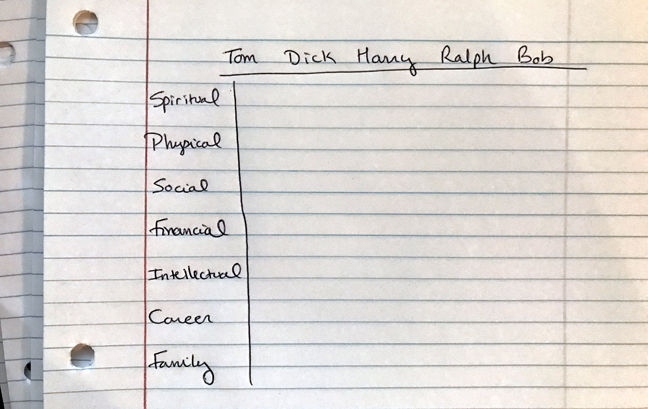 Tom Dick Harry Ralph Bob
Spiritual
Physical
Social
Financial
Intellectual
Career
Family